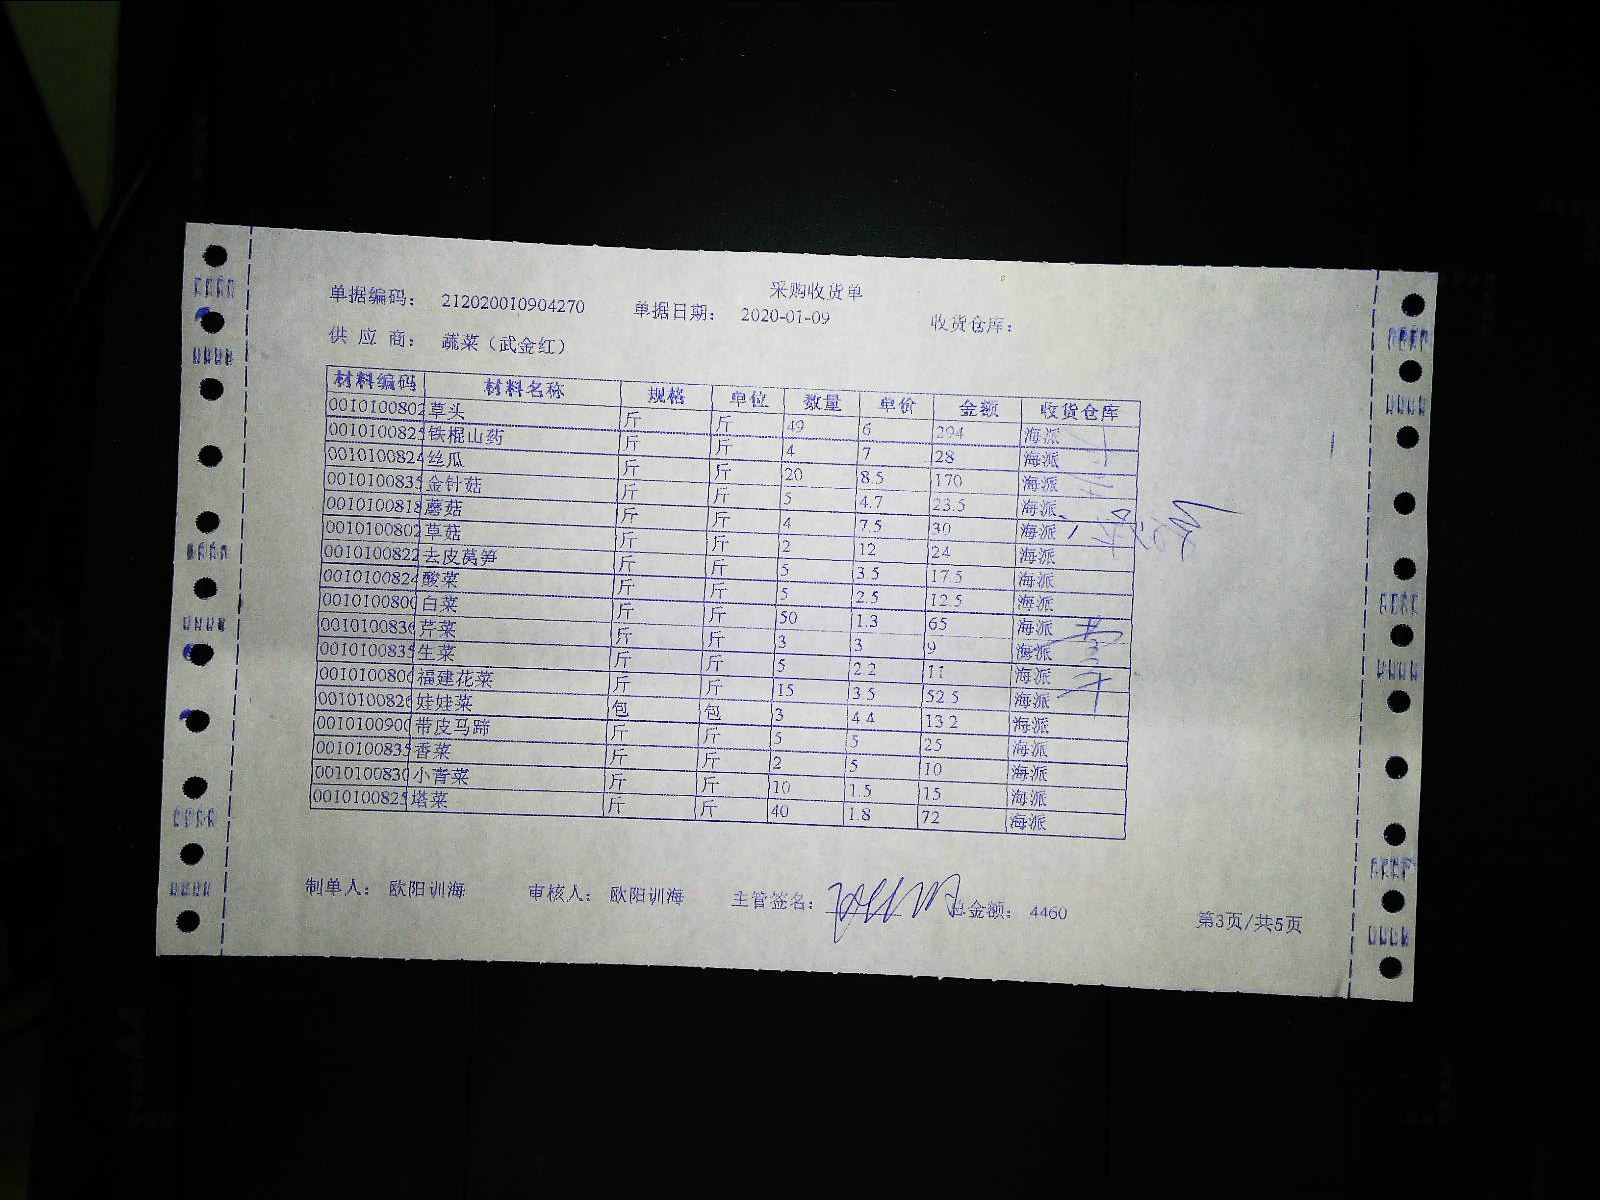 采购收货单
单据编码： 212020010904270 单据日期： 2020-01-09 收货仓库：
供 应 商： 蔬菜（武金红）
材料编码 材料名称 规格 单位 数量 单价 金额 收货仓库
0010100802 草头 斤 斤 49 6 294 海派
0010100825 铁棍山药 斤 斤 4 7 28 海派
0010100824 丝瓜 斤 斤 20 8.5 170 海派
0010100835 金针菇 斤 斤 5 4.7 23.5 海派
0010100818 蘑菇 斤 斤 4 7.5 30 海派
0010100802 草菇 斤 斤 2 12 24 海派
0010100822 去皮莴笋 斤 斤 5 3.5 17.5 海派
0010100824 酸菜 斤 斤 5 2.5 12.5 海派
0010100800 白菜 斤 斤 50 1.3 65 海派
0010100836 芹菜 斤 斤 3 3 9 海派
0010100835 生菜 斤 斤 5 2.2 11 海派
0010100806 福建花菜 斤 斤 15 3.5 52.5 海派
0010100826 娃娃菜 包 包 3 4.4 13.2 海派
0010100900 带皮马蹄 斤 斤 5 5 25 海派
0010100835 香菜 斤 斤 2 5 10 海派
0010100830 小青菜 斤 斤 10 1.5 15 海派
0010100825 塔菜 斤 斤 40 1.8 72 海派
制单人： 欧阳训海 审核人： 欧阳训海 主管签名： 总金额： 4460 第3页/共5页